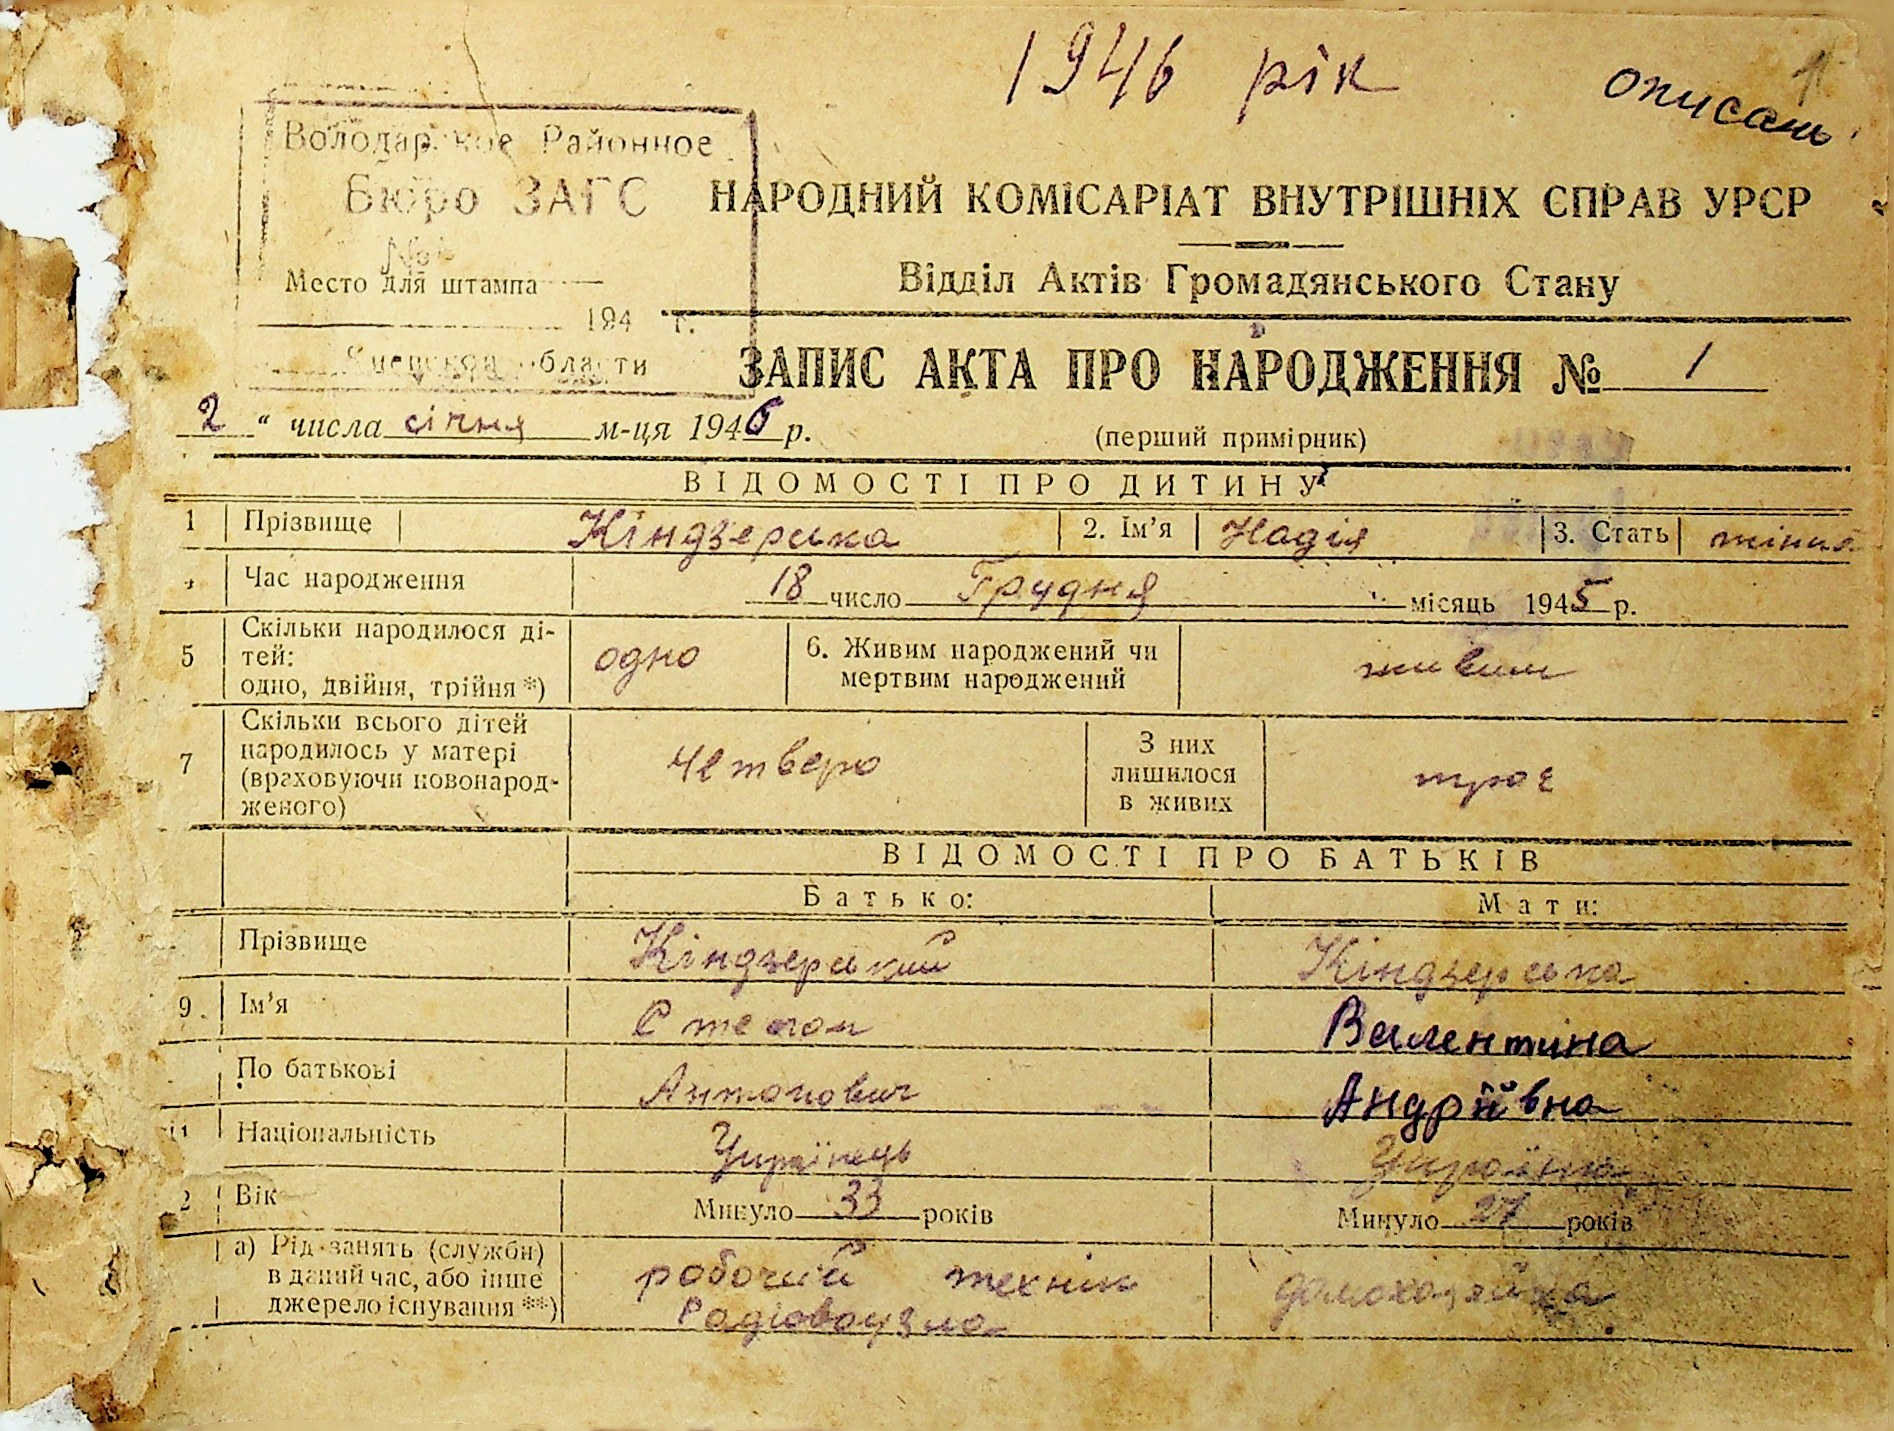 1946 рік
1
описань
Володарское Районное
Бюро ЗАГС
№
Место для штампа
194 г.
Киевской области
НАРОДНИЙ КОМІСАРІАТ ВНУТРІШНІХ СПРАВ УРСР
Відділ Актів Громадянського Стану
ЗАПИС АКТА ПРО НАРОДЖЕННЯ № 1
2 " числа січня м-ця 1946 р.
(перший примірник)
ВІДОМОСТІ ПРО ДИТИНУ
1 Прізвище Кіндзерська 2. Ім'я Надія 3. Стать
Час народження 18 число Грудня місяць 1945 р.
5 Скільки народилося ді-
тей:
одно, двійня, трійня *) одно 6. Живим народжений чи
мертвим народжений живим
7 Скільки всього дітей
народилось у матері
(враховуючи новонарод-
женого) четверо З них
лишилося
в живих троє
ВІДОМОСТІ ПРО БАТЬКІВ
Батько: Мати:
Прізвище Кіндзерський Кіндзерська
9. Ім'я Степан Валентина
По батькові Антонович Андріївна
11 Національність Українець Українка
2 Вік Минуло 33 років Минуло 27 років
а) Рід занять (служби)
в даний час, або інше
джерело існування **) робочий технік
Радіовоузла домохазяйка